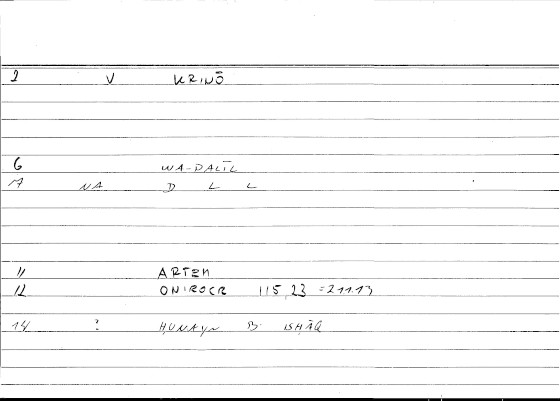 1 V KRINŌ
6 WA-DALĪL
7 NA D L L
11 ARTEM
12 ONIROCR 115,23 =211.13
14 ? ḤUNAYN B ISḤĀQ